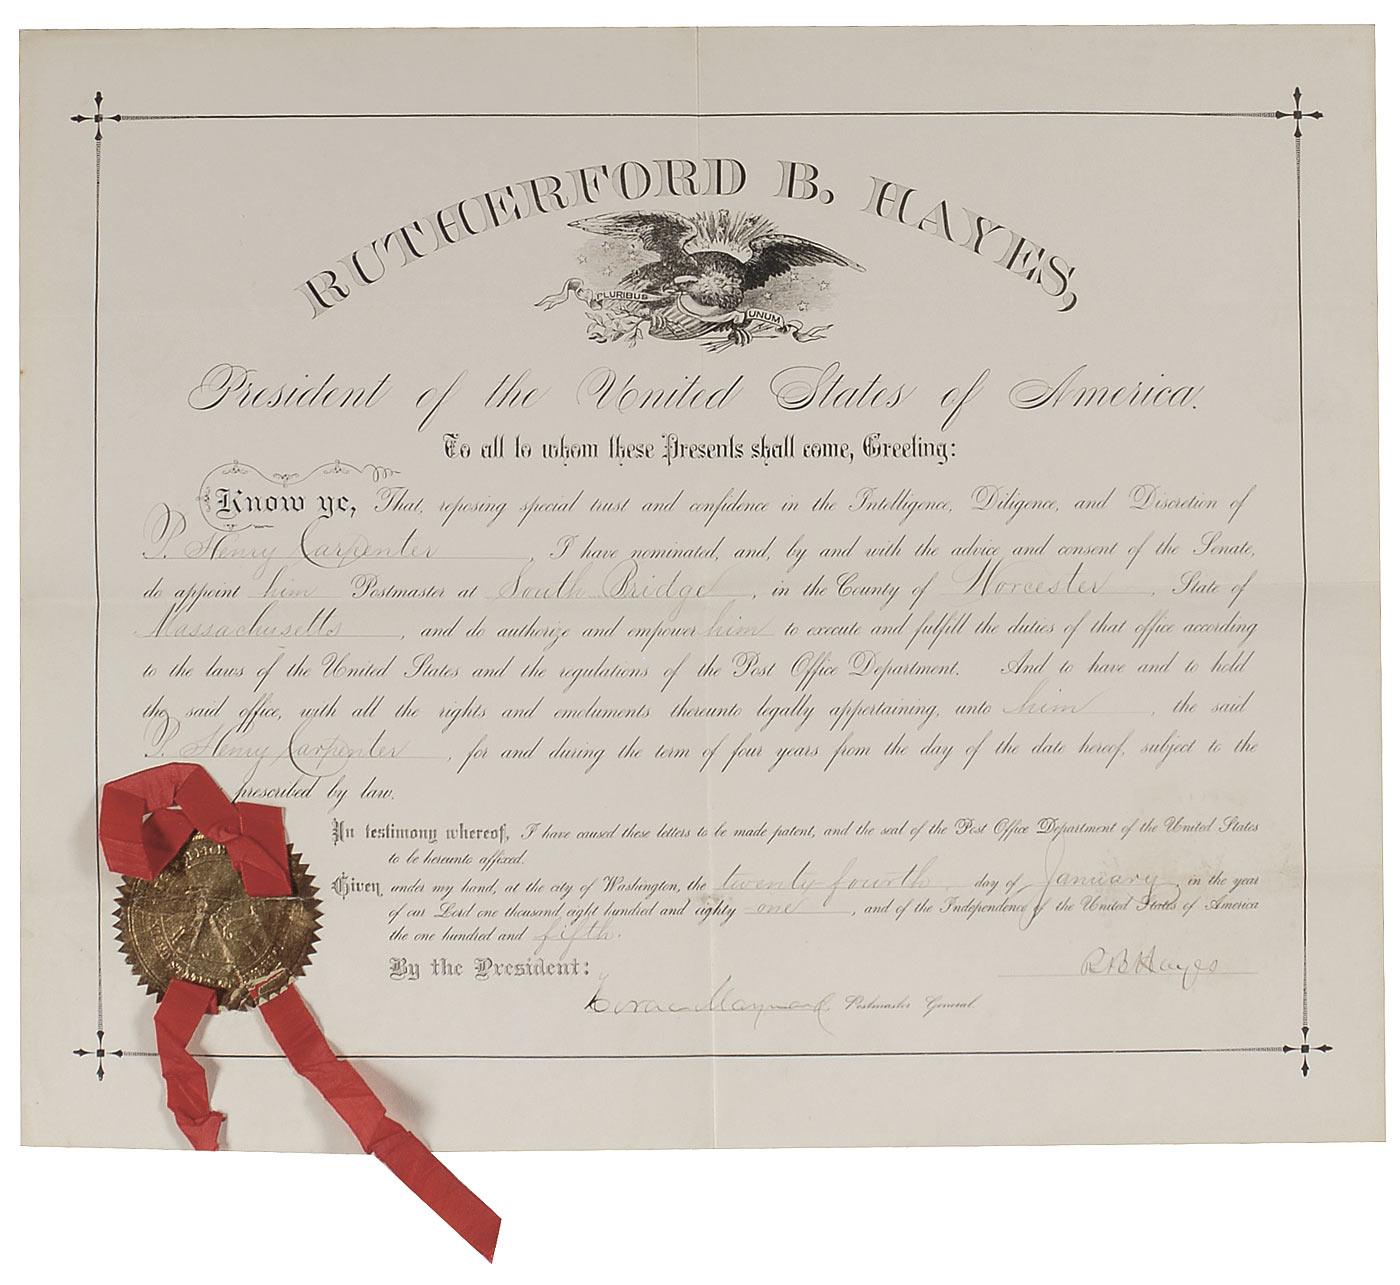 RUTHERFORD B. HAYES,
PLURIBUS UNUM
President of the United States of America.
To all to whom these Presents shall come, Greeting:
Know ye, That, reposing special trust and confidence in the Intelligence, Diligence, and Discretion of
P. Henry Carpenter, I have nominated, and, by and with the advice and consent of the Senate,
do appoint him Postmaster at South Bridge, in the County of Worcester, State of
Massachusetts, and do authorize and empower him to execute and fulfill the duties of that office according
to the laws of the United States and the regulations of the Post Office Department. And to have and to hold
the said office, with all the rights and emoluments thereunto legally appertaining, unto him, the said
P. Henry Carpenter, for and during the term of four years from the day of the date hereof, subject to the
prescribed by law.
In testimony whereof, I have caused these letters to be made patent, and the seal of the Post Office Department of the United States
to be hereunto affixed.
Given under my hand, at the city of Washington, the twenty-fourth day of January, in the year
of our Lord one thousand eight hundred and eighty-one, and of the Independence of the United States of America
the one hundred and fifth.
By the President:
R B Hayes
Horace Maynard Postmaster General.